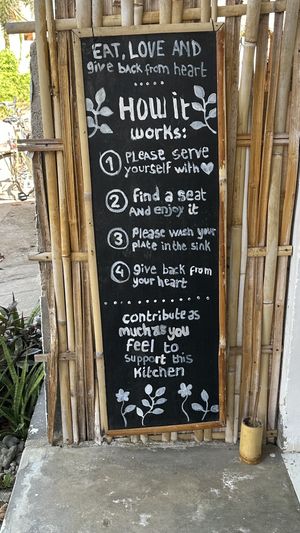 EAT, LOVE AND
give back from heart
HOW it
works:
1 PLEASE SERVE
yourself with
2 find a SEAT
AND enjoy it
3 Please wash your
plate in the sink
4 give back from
your heart
contribute as
much as you
feel to
support this
kitchen